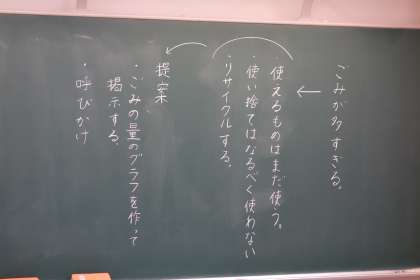 ごみが多すぎる。
・使えるものはまだ使う。
・使い捨てはなるべく使わない
・リサイクルする。
提案
・ごみの量のグラフを作って
掲示する。
・呼びかけ